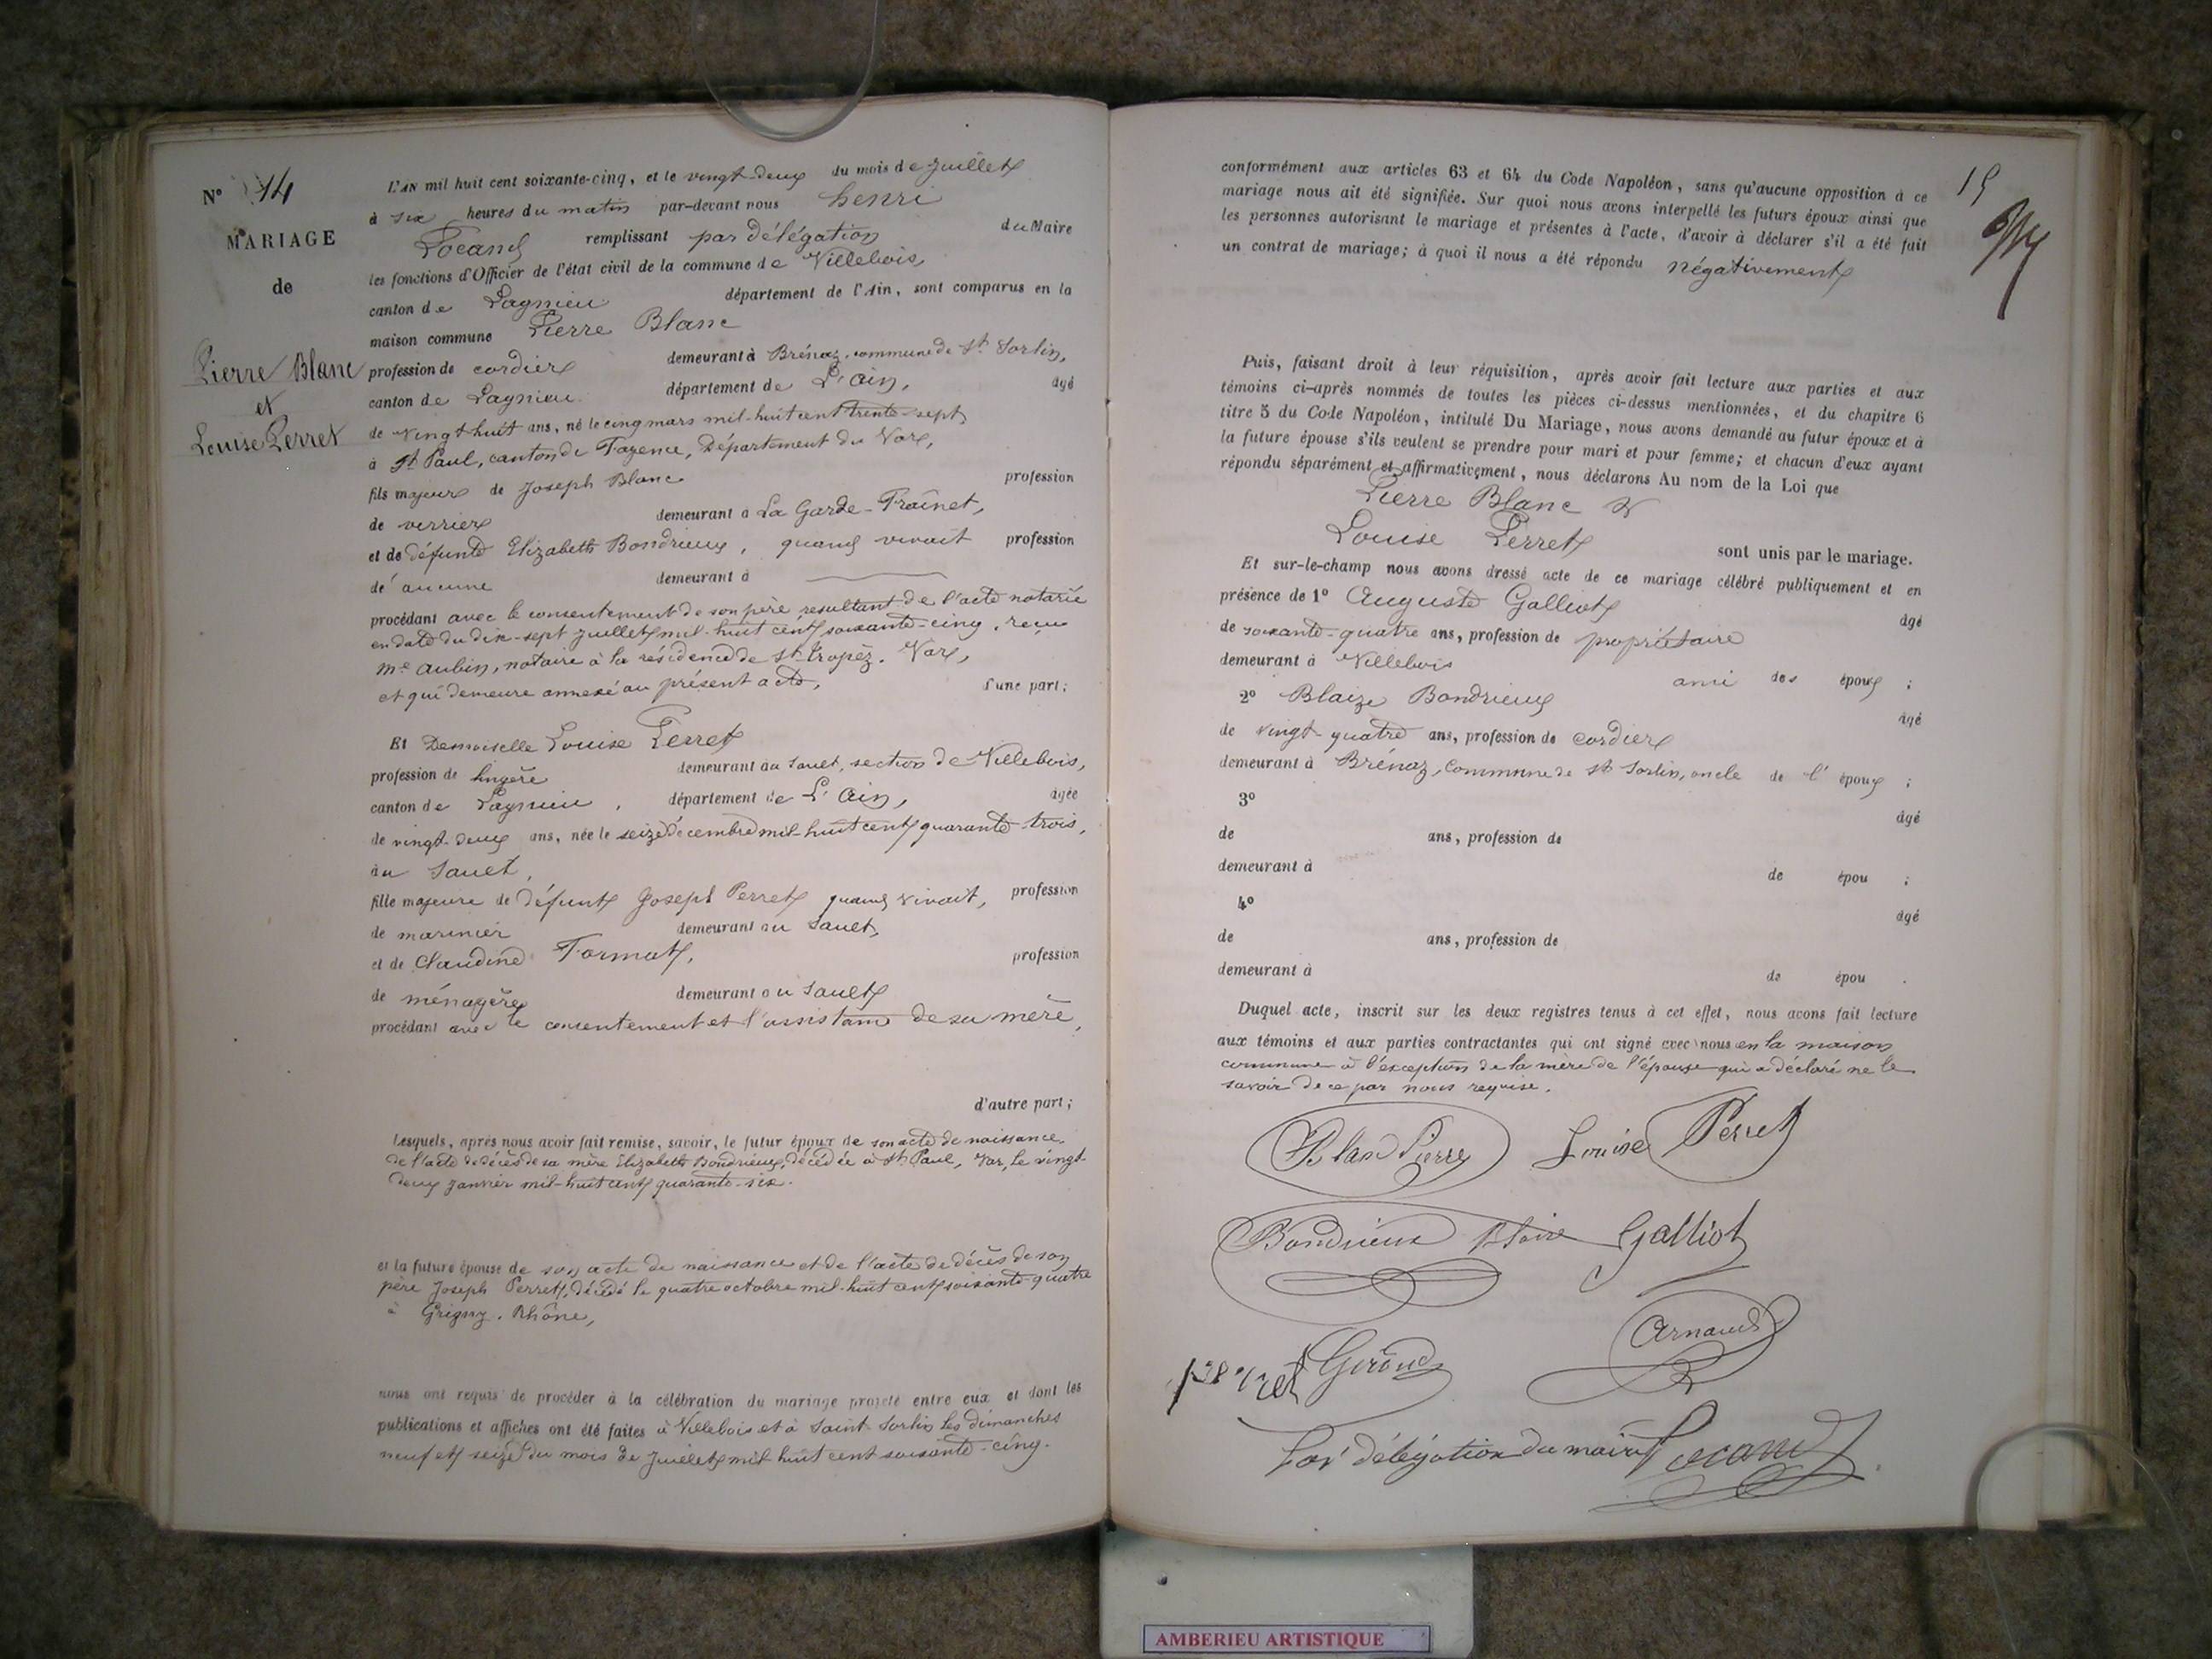 N° 14
MARIAGE
de
Pierre Blanc
et
Louise Perret
L'AN mil huit cent soixante-cinq, et le vingt-deux du mois de juillet
à six heures du matin par-devant nous henri
Locand remplissant par délégation du Maire
les fonctions d'Officier de l'état civil de la commune de Villebois,
canton de Lagnieu département de l'Ain, sont comparus en la
maison commune Pierre Blanc
profession de cordier demeurant à Brénaz, commune de St Sorlin,
canton de Lagnieu département de L'ain, âgé
de vingt huit ans, né le cinq mars mil-huit cent trente-sept
à St Paul, canton de Fayence, Département du Var,
fils majeur de Joseph Blanc profession
de verrier demeurant à La Garde-Fraînet,
et de défunte Elizabeth Bondrieux, quand vivait profession
de aucune demeurant à
procédant avec le consentement de son père resultant de l'acte notarié
en date du dix-sept juillet mil-huit cent soixante-cinq, reçu
Me aubin, notaire à la résidence de St tropèz. Var,
et qui demeure annexé au présent acte, d'une part;
Et Demoiselle Louise Perret
profession de lingère demeurant au Sault, section de Villebois,
canton de Lagnieu, département de L'Ain, âgée
de vingt-deux ans, née le seize décembre mil-huit cent quarante-trois,
au Sault,
fille majeure de défunt Joseph Perret quand vivait, profession
de marinier demeurant au Sault,
et de Claudine Tormat, profession
de ménagère demeurant au Sault
procédant avec le consentement et l'assistance de sa mère,
d'autre part;
Lesquels, après nous avoir fait remise, savoir, le futur époux de son acte de naissance,
de l'acte de décès de sa mère Elizabeth Bondrieux, décédée à St Paul, Var, le vingt-
deux janvier mil-huit cent quarante-six.
et la future épouse de son acte de naissance et de l'acte de décès de son
père Joseph Perret, décédé le quatre octobre mil-huit cent soixante-quatre
à Grigny. Rhône,
nous ont requis de procéder à la célébration du mariage projeté entre eux et dont les
publications et affiches ont été faites à Villebois et à Saint Sorlin les dimanches
neuf et seize du mois de Juillet mil huit cent soixante-cinq.
15
conformément aux articles 63 et 64 du Code Napoléon, sans qu'aucune opposition à ce
mariage nous ait été signifiée. Sur quoi nous avons interpellé les futurs époux ainsi que
les personnes autorisant le mariage et présentes à l'acte, d'avoir à déclarer s'il a été fait
un contrat de mariage; à quoi il nous a été répondu négativement
Puis, faisant droit à leur réquisition, après avoir fait lecture aux parties et aux
témoins ci-après nommés de toutes les pièces ci-dessus mentionnées, et du chapitre 6
titre 5 du Code Napoléon, intitulé Du Mariage, nous avons demandé au futur époux et à
la future épouse s'ils veulent se prendre pour mari et pour femme; et chacun d'eux ayant
répondu séparément et affirmativement, nous déclarons Au nom de la Loi que
Pierre Blanc &
Louise Perret sont unis par le mariage.
Et sur-le-champ nous avons dressé acte de ce mariage célébré publiquement et en
présence de 1° Auguste Galliot âgé
de soixante-quatre ans, profession de propriétaire
demeurant à Villebois ami des époux ;
2° Blaize Bondrieux âgé
de vingt-quatre ans, profession de cordier
demeurant à Brénaz, Commune de St Sorlin, oncle de l' époux ;
3° âgé
de ans, profession de
demeurant à de épou ;
4° âgé
de ans, profession de
demeurant à de épou .
Duquel acte, inscrit sur les deux registres tenus à cet effet, nous avons fait lecture
aux témoins et aux parties contractantes qui ont signé avec nous en la maison
commune à l'exception de la mère de l'épouse qui a déclaré ne le
savoir de ce par nous requise.
Blanc Pierre Louise Perret
Bondrieux Blaise Galliot
Arnaud
Giroud
Par délégation du maire Locand
AMBERIEU ARTISTIQUE